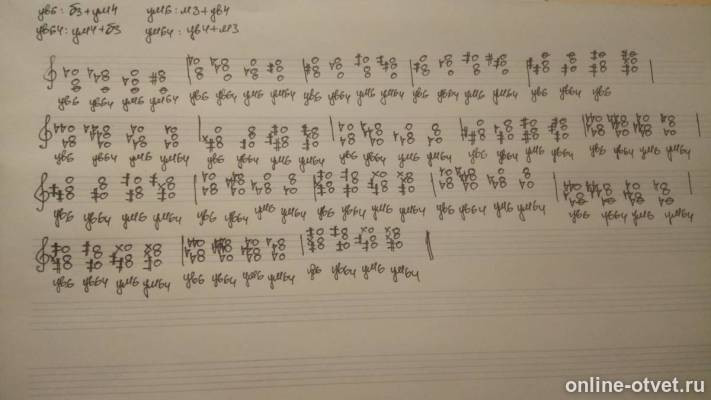 ув6: б3+ум4 ум6: м3+ув4
ув64: ум4+б3 ум64: ув4+м3
ув6 ув64 ум6 ум64 ув6 ув64 ум6 ум64 ув6 ув64 ум6 ум64 ув6 ув64 ум6 ум64 ув6 ув64 ув6
ув6 ув64 ум6 ум64 ув6 ув64 ум6 ум64 ув6 ув64 ум6 ум64 ув6 ув64 ум6 ум64 ув6 ув64 ум6 ум64
ув6 ув64 ум6 ум64 ув6 ув64 ум6 ум64 ув6 ув64 ум6 ум64 ув6 ув64 ум6 ум64 ув6 ув64 ум6 ум64
ув6 ув64 ум6 ум64 ув6 ув64 ум6 ум64 ув6 ув64 ум6 ум64
online-otvet.ru